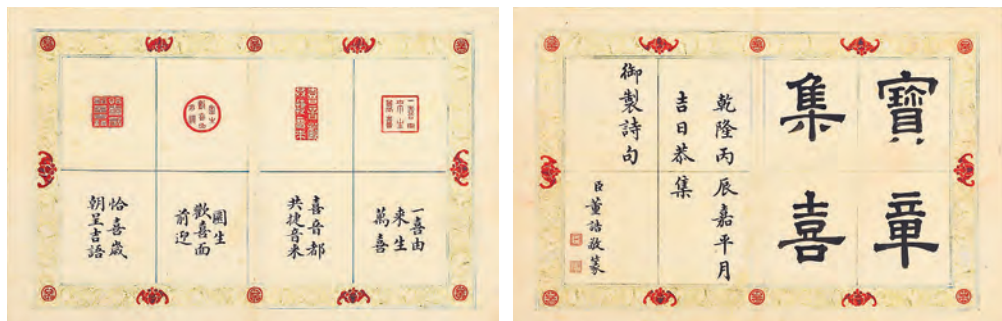 寶章
集喜
乾隆丙辰嘉平月
吉日恭集
御製詩句
臣董誥敬篆
一喜由
來生
萬喜
喜音都
共捷音來
生
歡喜面
前迎
恰喜歲
朝呈吉語